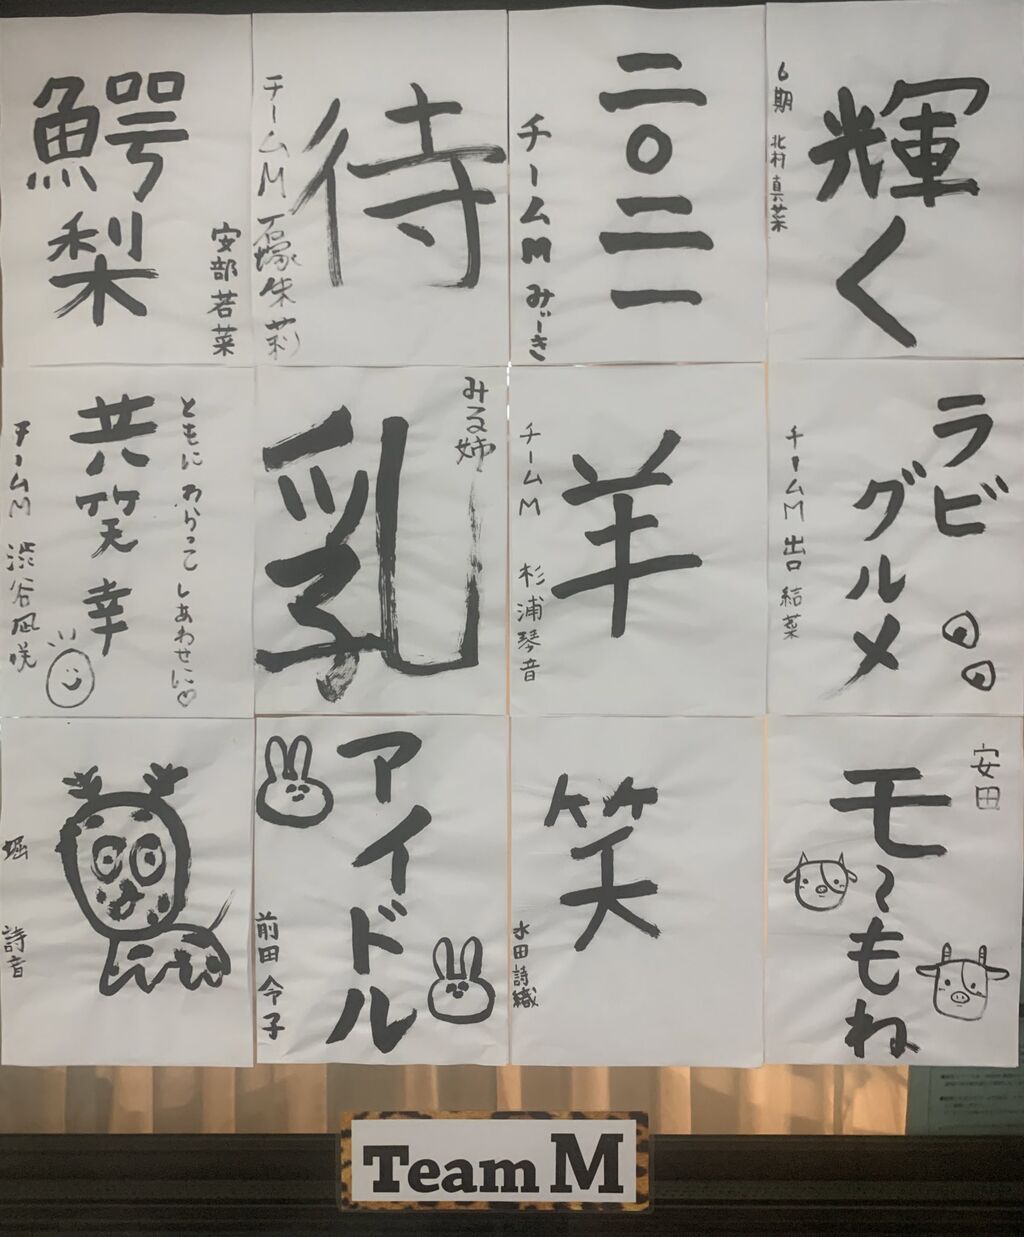 鰐梨
安部若菜
チームM 石塚朱莉
待
二〇二一
チームM みぃーき
6期 北村真菜
輝く
ともに わらって しあわせに♡
共笑幸
チームM 渋谷凪咲
みる姉
乳
羊
チームM 杉浦琴音
ラビ
グルメ
チームM 出口結菜
堀 詩音
アイドル
前田令子
笑
水田詩織
安田
モ〜もね
Team M